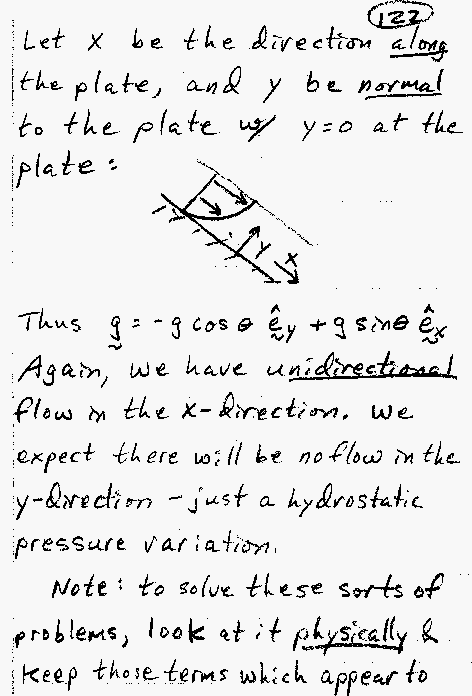 122
Let x be the direction along
the plate, and y be normal
to the plate w/ y=0 at the
plate:
y
x
Thus g = -g cos θ êy + g sin θ êx
Again, we have unidirectional
flow in the x-direction. We
expect there will be no flow in the
y-direction - just a hydrostatic
pressure variation.
Note: to solve these sorts of
problems, look at it physically &
keep those terms which appear to